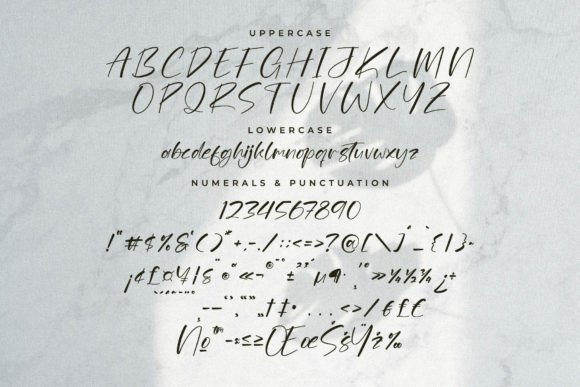 UPPERCASE
ABCDEFGHIJKLMN
OPQRSTUVWXYZ
LOWERCASE
abcdefghijklmnopqrstuvwxyz
NUMERALS & PUNCTUATION
1234567890
!"#$%&'()*+,-./:;<=>?@[\]^_`{|}~
¡¢£¤¥¦§¨©ª«¬®¯°±²³´µ¶·¸¹º»¼½¾¿÷
†‡•…‹›⁄€£€
№™−÷≤≥ŒœŠšŸž‰